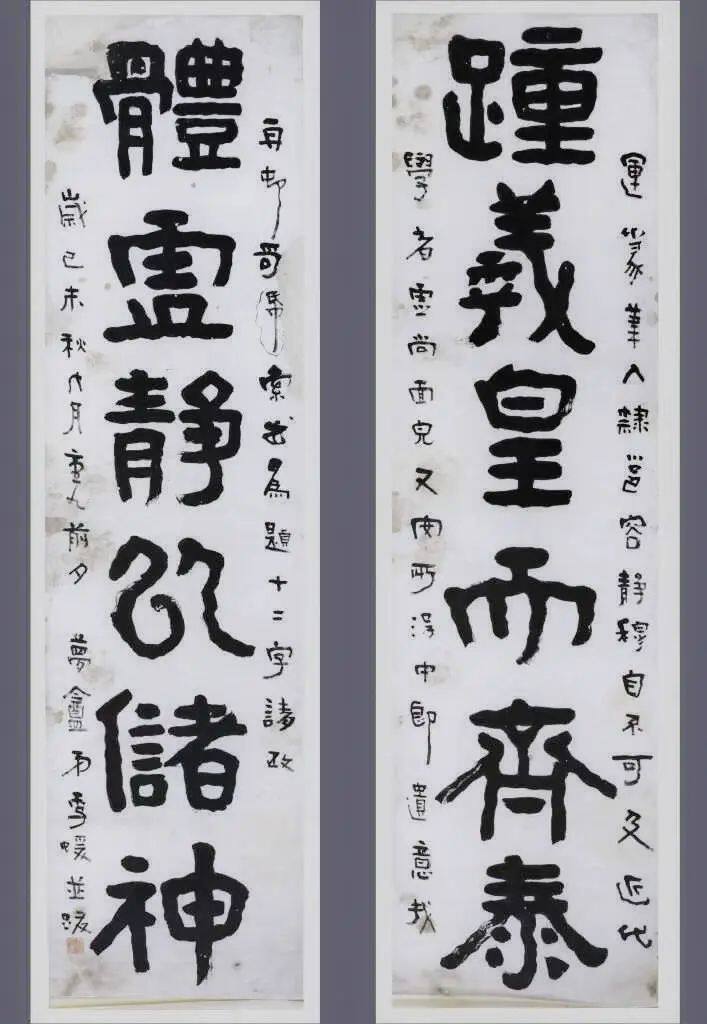 踵羲皇而齊泰
運篆筆入隸邕容靜穆自不可及近代
學者虛尚面皃又安所得中郎遺意哉
體虛靜以儲神
舟邨哥索書為題十二字請政
歲己未秋戌月重九前夕 夢盦弟並跋